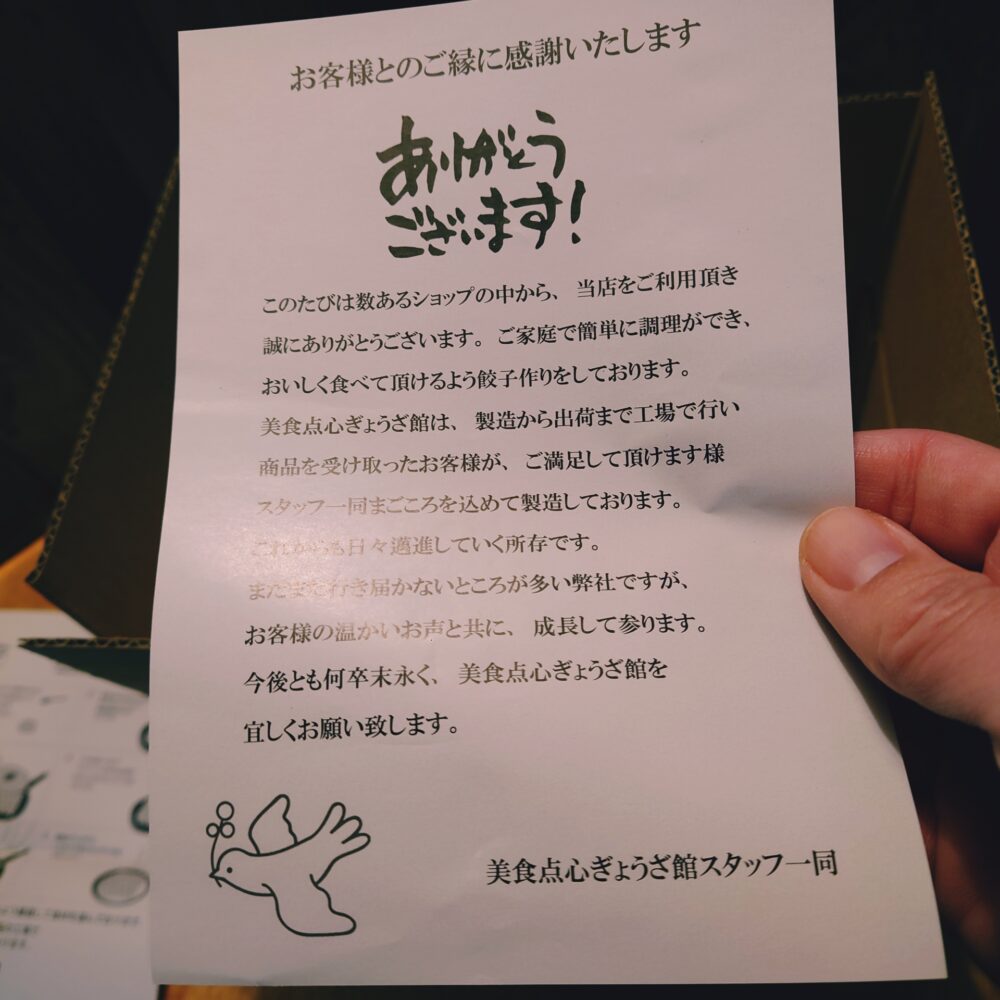 お客様とのご縁に感謝いたします
ありがとう
ございます!
このたびは数あるショップの中から、当店をご利用頂き
誠にありがとうございます。ご家庭で簡単に調理ができ、
おいしく食べて頂けるよう餃子作りをしております。
美食点心ぎょうざ館は、製造から出荷まで工場で行い
商品を受け取ったお客様が、ご満足して頂けます様
スタッフ一同まごころを込めて製造しております。
これからも日々邁進していく所存です。
まだまだ行き届かないところが多い弊社ですが、
お客様の温かいお声と共に、成長して参ります。
今後とも何卒末永く、美食点心ぎょうざ館を
宜しくお願い致します。
美食点心ぎょうざ館スタッフ一同